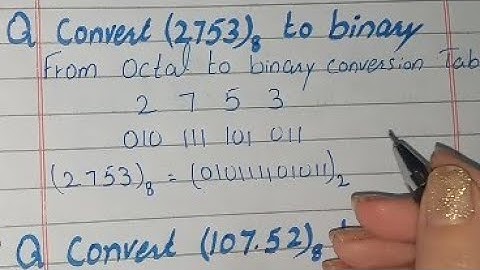 Q Convert (2753)₈ to binary
From Octal to binary conversion Tab
2 7 5 3
010 111 101 011
(2753)₈ = (010111101011)₂
Q Convert (107.52)₈